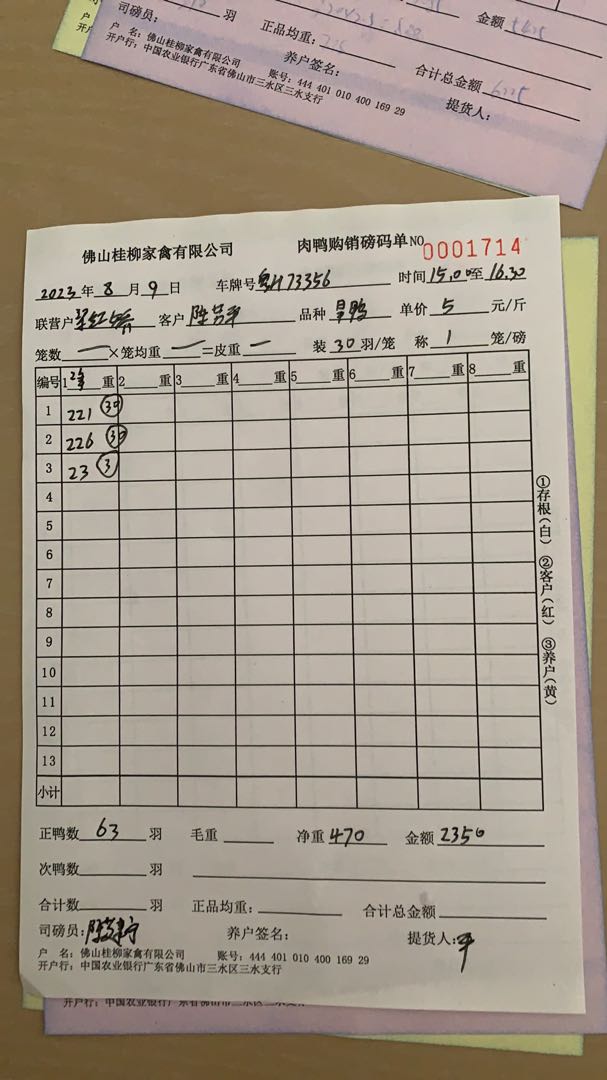 司磅员: 羽 正品均重: 金额 5425
户 名: 佛山桂柳家禽有限公司 养户签名: 合计总金额 6225
开户行: 中国农业银行广东省佛山市三水区三水支行 账号: 444 401 010 400 169 29 提货人:
佛山桂柳家禽有限公司 肉鸭购销磅码单 NO 0001714
2023 年 8 月 9 日 车牌号 粤H73356 时间 15.00 至 16.30
联营户 客户 品种 单价 5 元/斤
笼数 一 ×笼均重 一 =皮重 一 装 30 羽/笼 称 1 笼/磅
编号 1 重 2 重 3 重 4 重 5 重 6 重 7 重 8 重
1 221 30
2 226 30
3 23 3
4
5
6
7
8
9
10
11
12
13
小计
①存根(白) ②客户(红) ③养户(黄)
正鸭数 63 羽 毛重 净重 470 金额 2350
次鸭数 羽
合计数 羽 正品均重: 合计总金额
司磅员: 养户签名: 提货人: 平
户 名: 佛山桂柳家禽有限公司 账号: 444 401 010 400 169 29
开户行: 中国农业银行广东省佛山市三水区三水支行
开户行: 中国农业银行广东省佛山市三水区三水支行